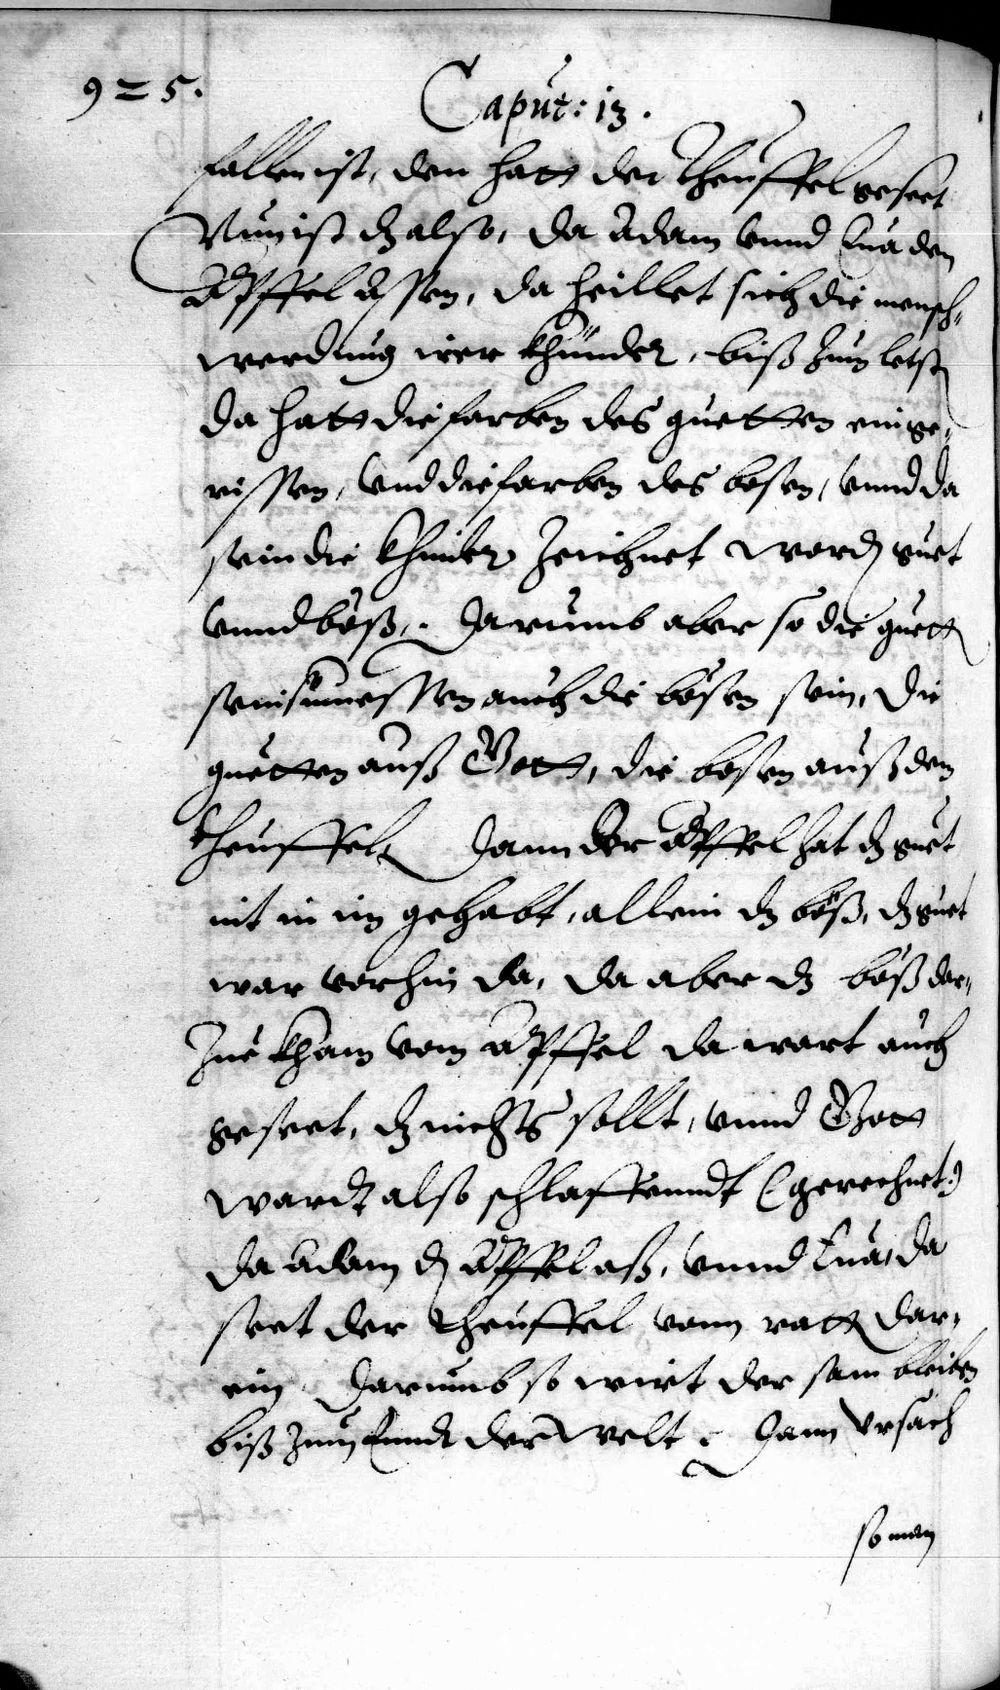 9=5.
Caput: 13.
fallen ist, den hatt der Theuffel geseet
Nun ist dz also, da Adam vnnd Eua den
Apffel assen, da theillet sich die mensch-
werdung irer khinder, biß zum letst
da hatt die farben des guetten einge-
rissen, vnd die farben des bosen, vnnd da
sein die khinder zeichnet word guet
vnnd böß. Darumb aber so die guett
sein muessen auch die bösen sein, die
guetten auß Gott, die bosen auß dem
theuffel Dann der Apffel hat dz guet
nit in im gehabt, allein dz böß, dz guet
war vorhin da, da aber dz böß dar-
zue kham vom Apffel da wart auch
geseet, dz nichts sollt, vnnd Gott
wardt also schlaffenndt (gerechnet)
da Adam den Apffel aß, vnnd Eua, da
seet der theuffel vonn ratt dar-
ein. Darumb so wirt der sam bleiben
biß zum Ennd der Welt. Dann vrsach
so man